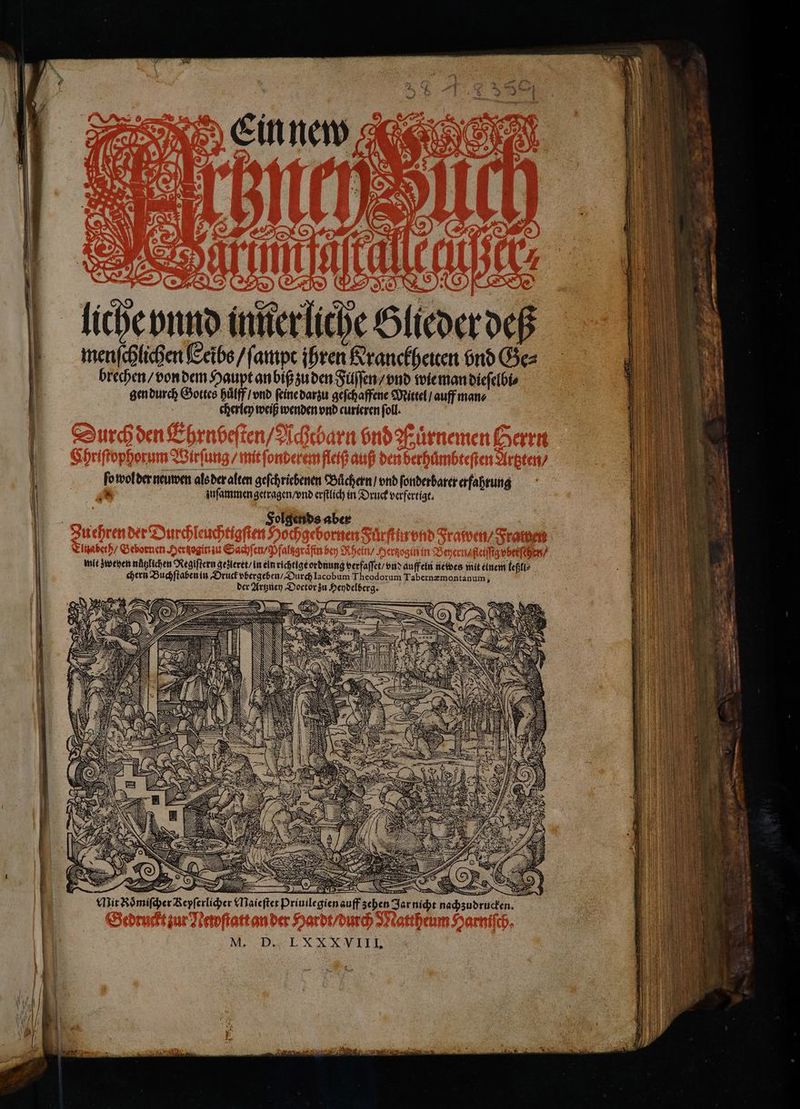 38 A. 8359
Ein new
Artzney Buch
Darinn fast alle eusser⸗
liche vnnd iñerliche Glieder deß
menschlichen Leibs / sampt ihren Kranckheiten vnd Ge⸗
brechen / von dem Haupt an biß zu den Füssen / vnd wie man dieselbi⸗
gen durch Gottes hülff / vnd seine darzu geschaffene Mittel / auff man⸗
cherley weiß wenden vnd curieren soll.
Durch den Ehrnvesten / Achtbarn vnd Fürnemen Herrn
Christophorum Wirsung / mit sonderem fleiß auß den berhümbtesten Ärtzten /
so wol der neuwen als der alten geschriebenen Büchern / vnd sonderbarer erfahrung
zusammen getragen / vnd erstlich in Druck verfertigt.
Folgends aber
Zu ehren der Durchleuchtigsten Hochgebornen Fürstin vnd Frawen / Frawen
Elizabeth / Gebornen Hertzogin zu Sachsen / Pfaltzgräfin bey Rhein / Hertzogin in Beyern / fleissig vbersehen /
mit zweyen nützlichen Registern gezieret / in ein richtige ordnung verfasset / vnd auff ein newes mit einem leßli⸗
chern Buchstaben in Druck vbergeben / Durch Iacobum Theodorum Tabernæmontanum,
der Artzney Doctor zu Heydelberg.
Mit Römischer Keyserlicher Maiestet Priuilegien auff zehen Jar nicht nachzudrucken.
Gedruckt zur Newstatt an der Hardt / durch Mattheum Harnisch.
M. D. LXXXVIII.
1588